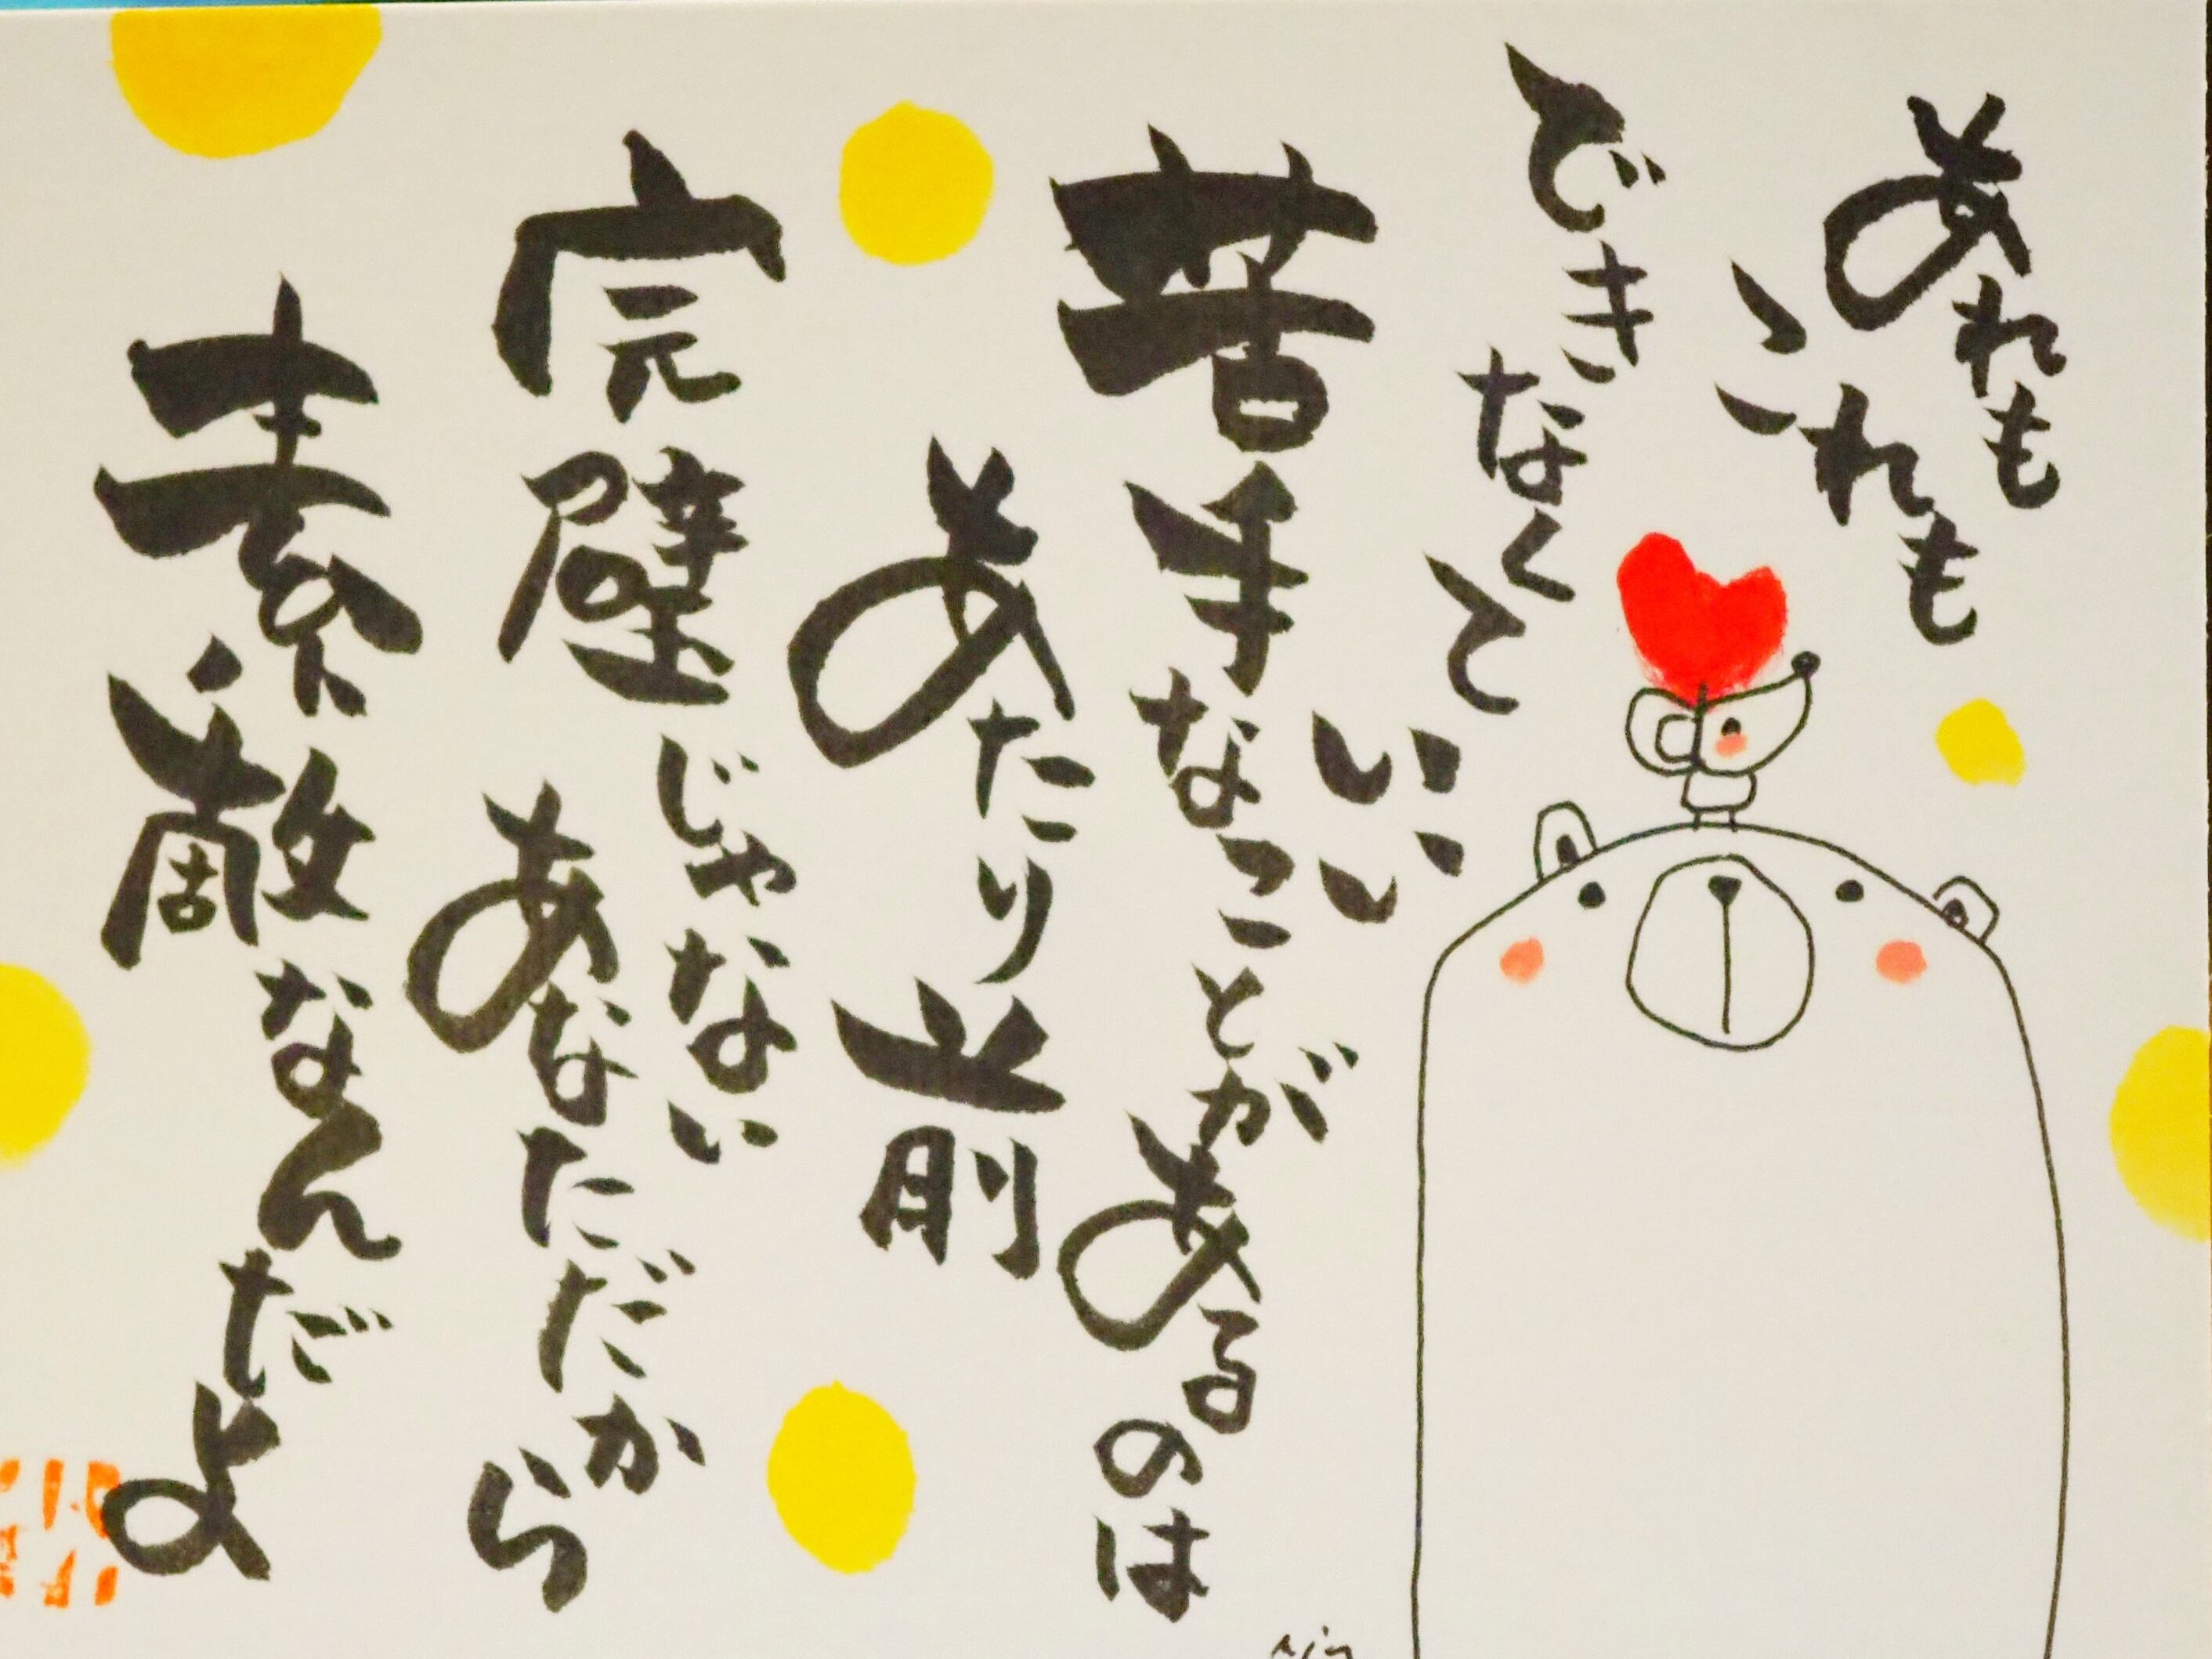 あれも
これも
できなくて
いい
苦手なことがあるのは
あたり前
完璧じゃない
あなただから
素敵なんだよ